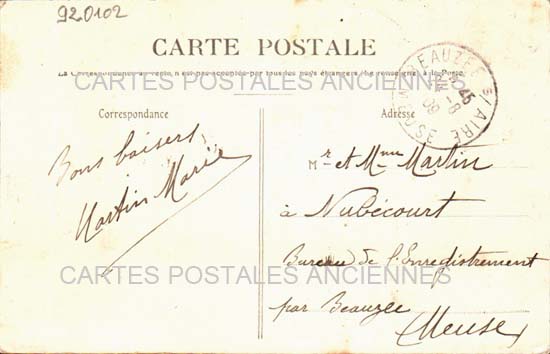 920102
CARTE POSTALE
La Correspondance au recto, n'est pas acceptée par tous les pays étrangers. (Se renseigner à la Poste)
Correspondance
Adresse
BEAUZÉE S/ AIRE
MEUSE
Bons baisers
Martin Marie
Mr et Mme Martin
à Nubécourt
Bureau de l'Enregistrement
par Beauzée
(Meuse)
CARTES POSTALES ANCIENNES
CARTES POSTALES ANCIENNES